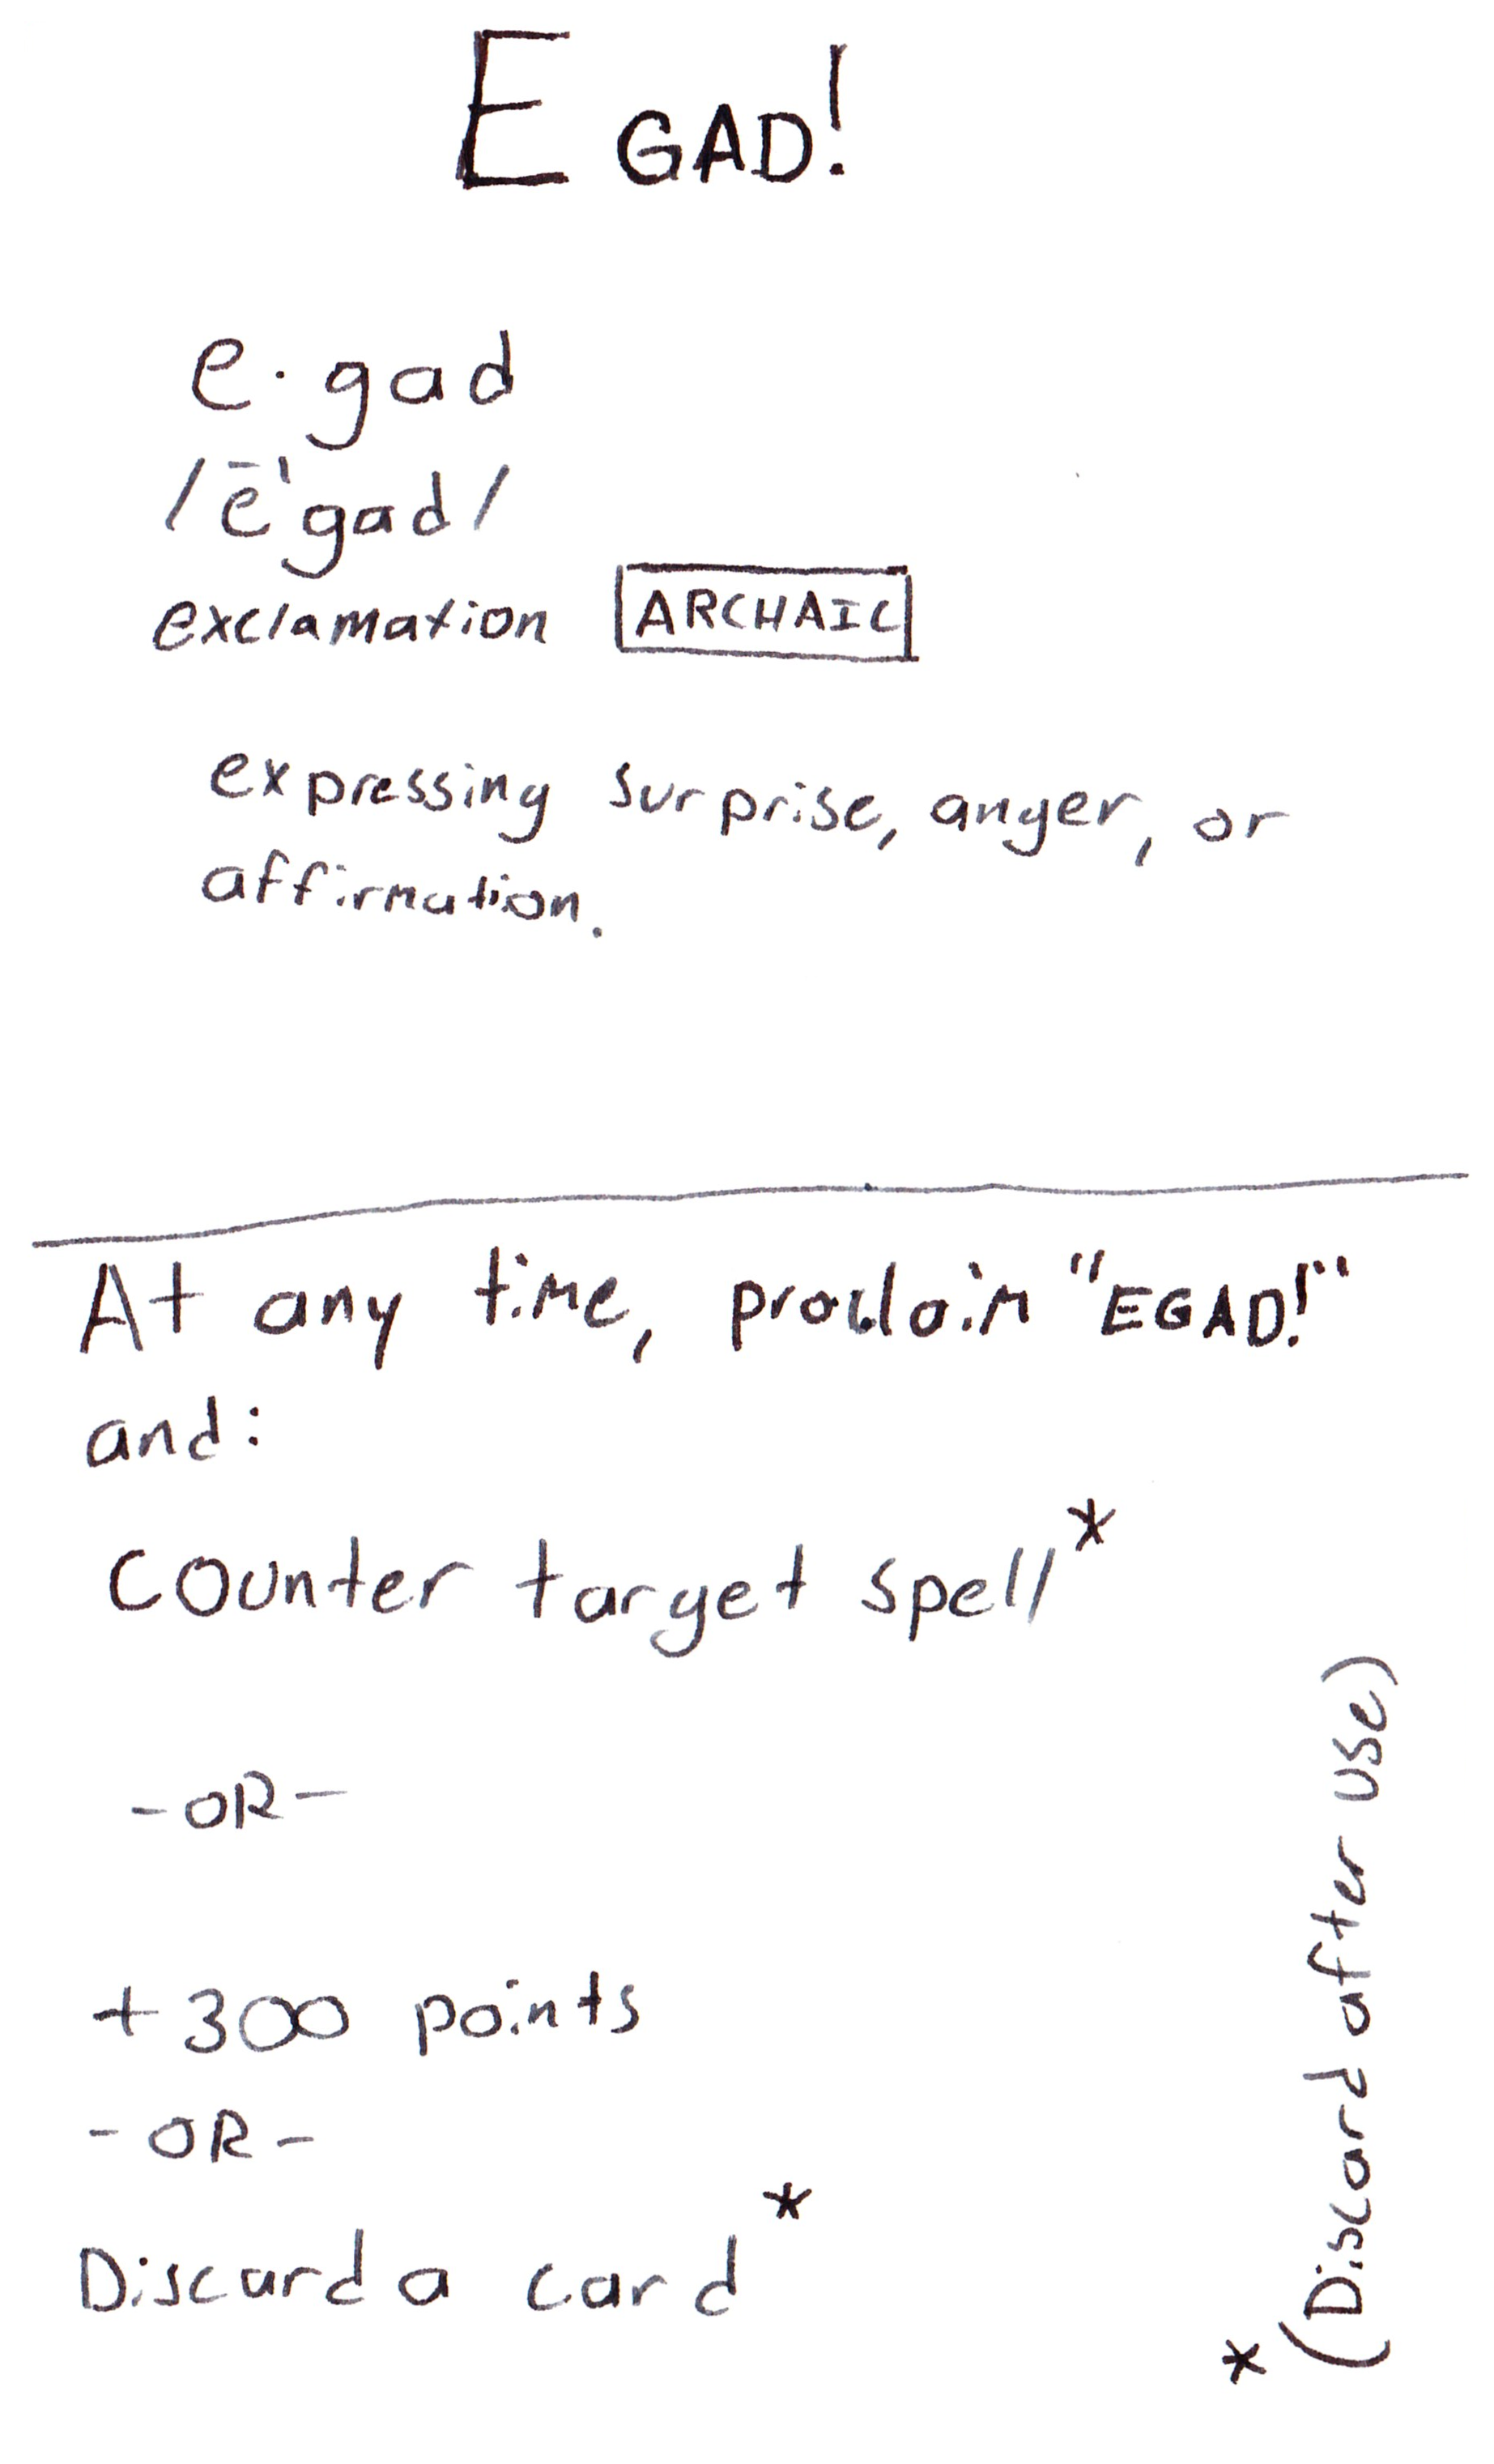 EGAD!
e·gad
/ēˈgad/
exclamation ARCHAIC
expressing surprise, anger, or
affirmation.
At any time, proclaim "EGAD!"
and:
Counter target spell*
-OR-
+300 points
-OR-
Discard a card*
*(Discard after use)